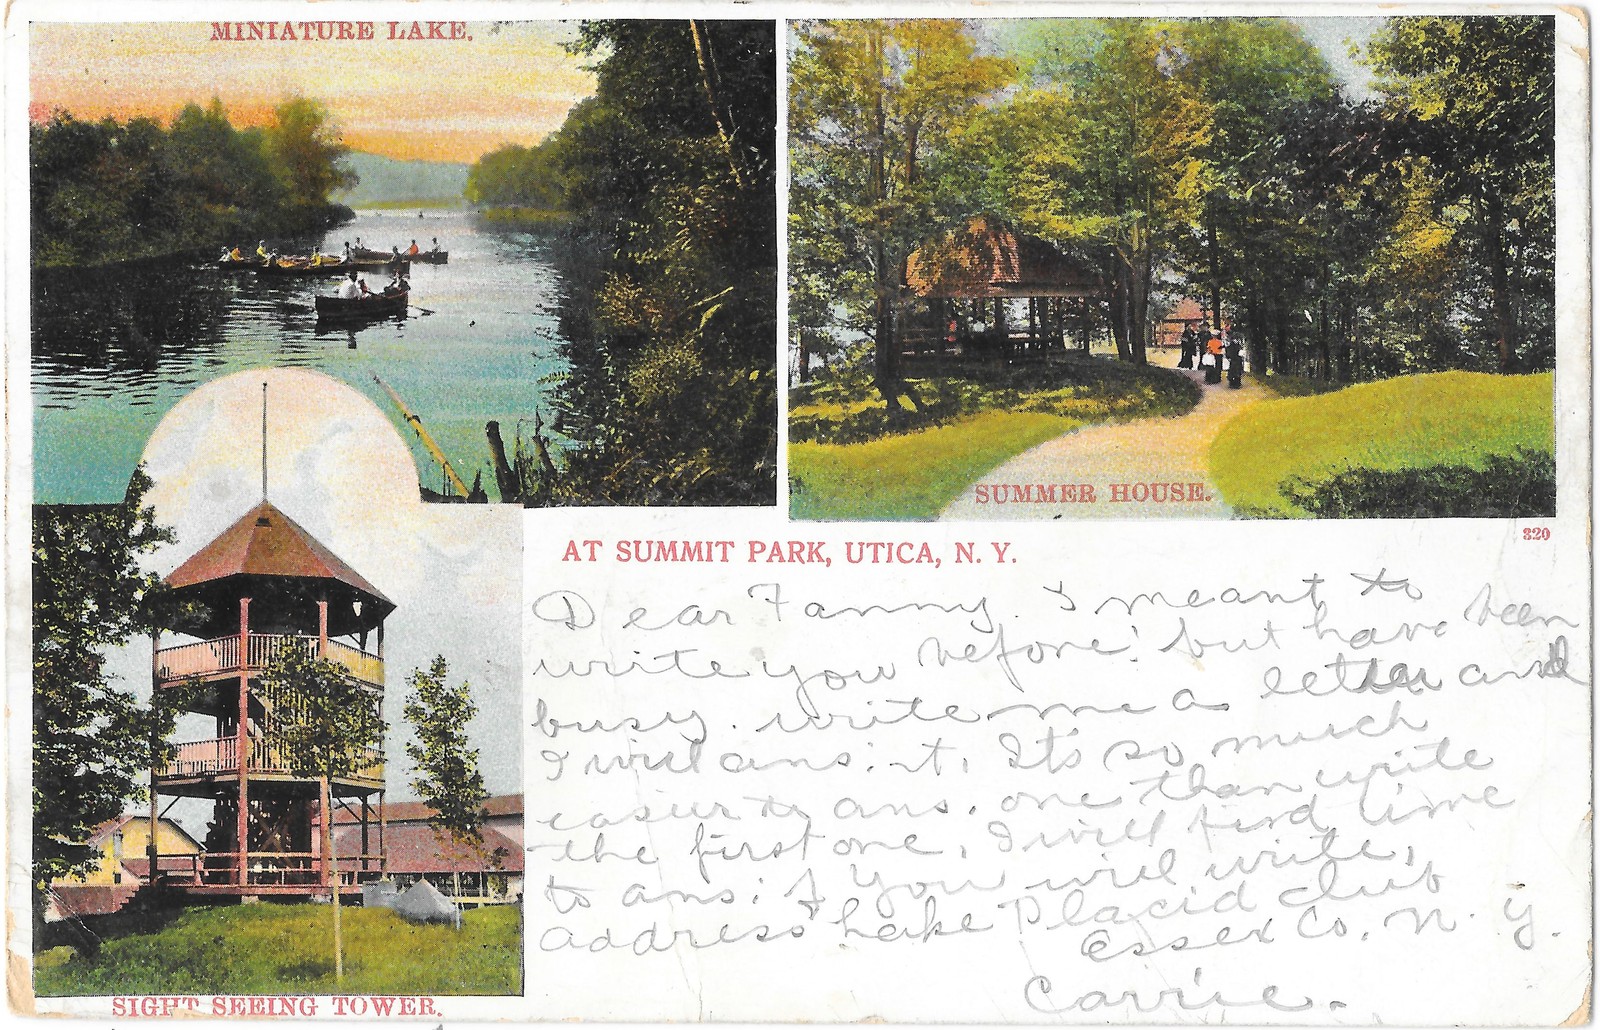 MINIATURE LAKE.
SUMMER HOUSE.
320
AT SUMMIT PARK, UTICA, N. Y.
Dear Fanny. I meant to
write you before. but have been
busy. write me a letter and
I will ans. it. Its so much
easier to ans. one than write
the first one, I will find time
to ans: if you will write,
address Lake Placid club
Essex Co. N. Y.
Carrie.
SIGHT SEEING TOWER.